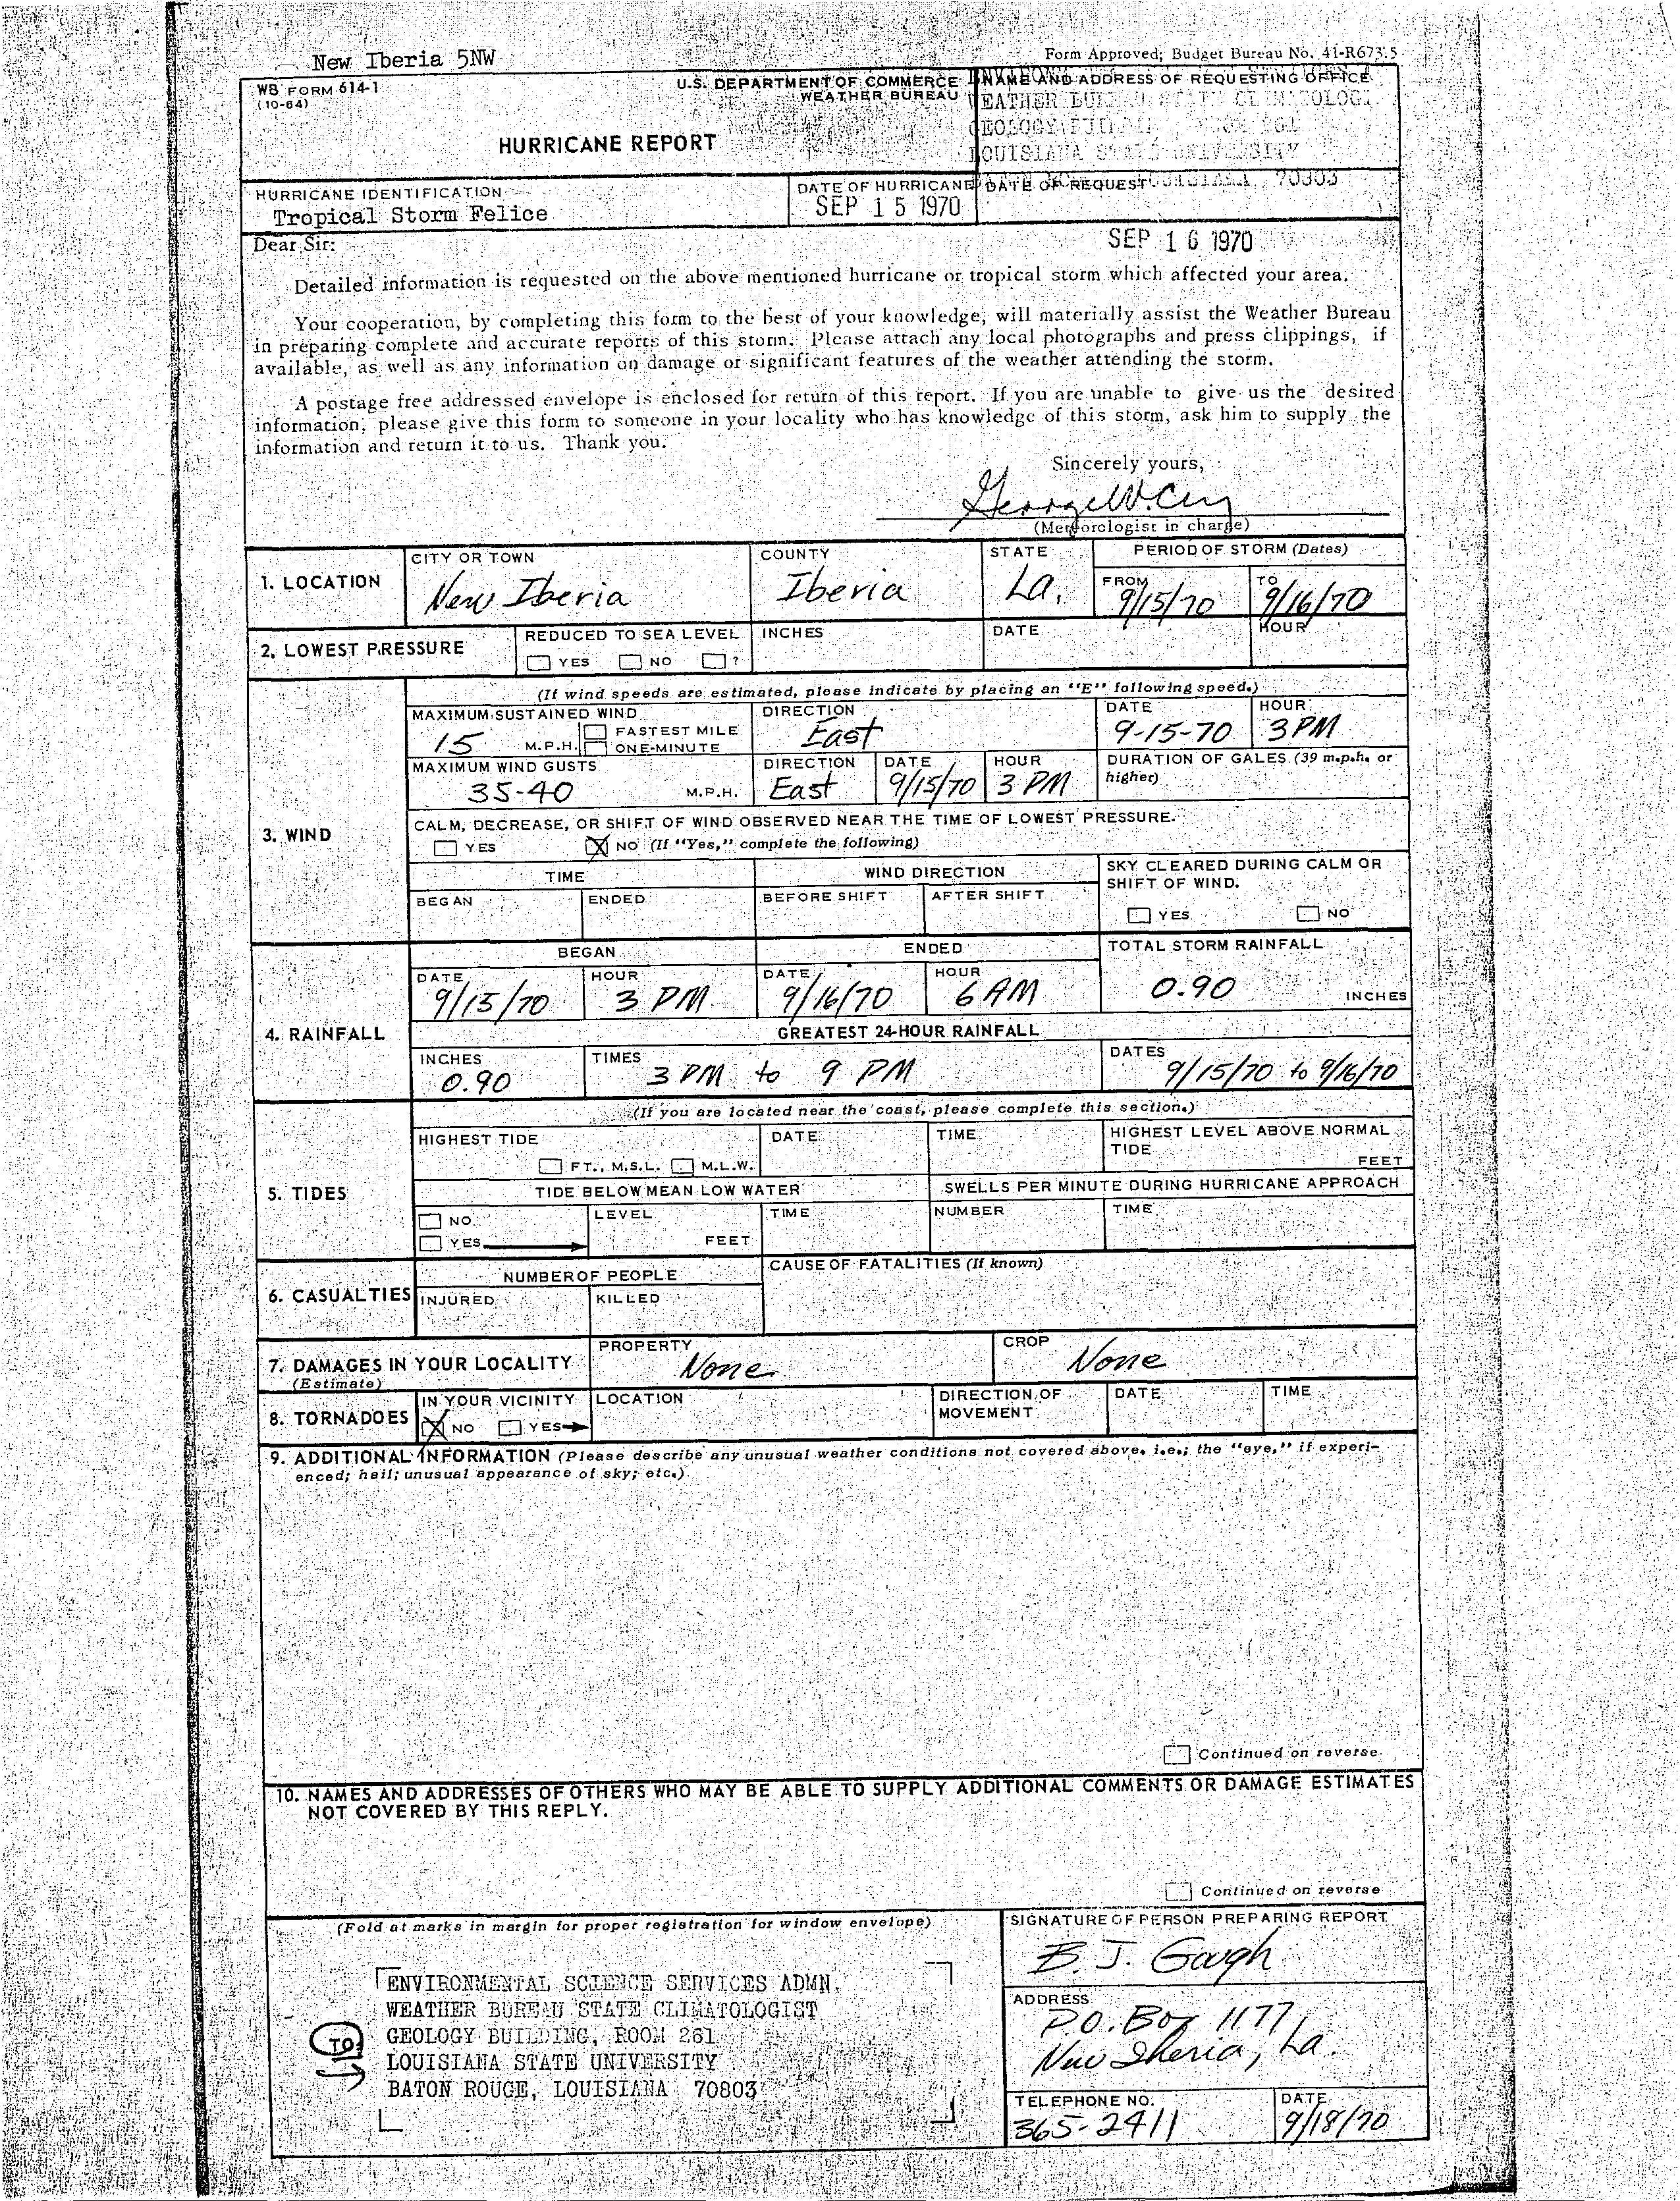 New Iberia 5NW
Form Approved; Budget Bureau No. 41-R673.5
WB FORM 614-1
(10-64)
U.S. DEPARTMENT OF COMMERCE
WEATHER BUREAU
NAME AND ADDRESS OF REQUESTING OFFICE
HURRICANE REPORT
HURRICANE IDENTIFICATION
Tropical Storm Felice
DATE OF HURRICANE
SEP 15 1970
DATE OF REQUEST
SEP 16 1970
Dear Sir:
Detailed information is requested on the above mentioned hurricane or tropical storm which affected your area.
Your cooperation, by completing this form to the best of your knowledge, will materially assist the Weather Bureau
in preparing complete and accurate reports of this storm. Please attach any local photographs and press clippings, if
available, as well as any information on damage or significant features of the weather attending the storm.
A postage free addressed envelope is enclosed for return of this report. If you are unable to give us the desired
information, please give this form to someone in your locality who has knowledge of this storm, ask him to supply the
information and return it to us. Thank you.
Sincerely yours,
George W. Cry
(Meteorologist in charge)
1. LOCATION
CITY OR TOWN
New Iberia
COUNTY
Iberia
STATE
La.
PERIOD OF STORM (Dates)
FROM
9/15/70
TO
9/16/70
2. LOWEST PRESSURE
REDUCED TO SEA LEVEL
YES NO ?
INCHES
DATE
HOUR
3. WIND
(If wind speeds are estimated, please indicate by placing an "E" following speed.)
MAXIMUM SUSTAINED WIND
15 M.P.H.
FASTEST MILE
ONE-MINUTE
DIRECTION
East
DATE
9-15-70
HOUR
3 PM
MAXIMUM WIND GUSTS
35-40 M.P.H.
DIRECTION
East
DATE
9/15/70
HOUR
3 PM
DURATION OF GALES (39 m.p.h. or
higher)
CALM, DECREASE, OR SHIFT OF WIND OBSERVED NEAR THE TIME OF LOWEST PRESSURE.
YES X NO (If "Yes," complete the following)
TIME
WIND DIRECTION
SKY CLEARED DURING CALM OR
SHIFT OF WIND.
BEGAN
ENDED
BEFORE SHIFT
AFTER SHIFT
YES NO
4. RAINFALL
BEGAN
ENDED
TOTAL STORM RAINFALL
DATE
9/15/70
HOUR
3 PM
DATE
9/16/70
HOUR
6 AM
0.90 INCHES
GREATEST 24-HOUR RAINFALL
INCHES
0.90
TIMES
3 PM to 9 PM
DATES
9/15/70 to 9/16/70
5. TIDES
(If you are located near the coast, please complete this section.)
HIGHEST TIDE
FT., M.S.L. M.L.W.
DATE
TIME
HIGHEST LEVEL ABOVE NORMAL
TIDE
FEET
TIDE BELOW MEAN LOW WATER
SWELLS PER MINUTE DURING HURRICANE APPROACH
NO
YES
LEVEL
FEET
TIME
NUMBER
TIME
6. CASUALTIES
NUMBER OF PEOPLE
INJURED
KILLED
CAUSE OF FATALITIES (If known)
7. DAMAGES IN YOUR LOCALITY
(Estimate)
PROPERTY
None
CROP
None
8. TORNADOES
IN YOUR VICINITY
X NO YES
LOCATION
DIRECTION OF
MOVEMENT
DATE
TIME
9. ADDITIONAL INFORMATION (Please describe any unusual weather conditions not covered above, i.e.; the "eye," if experi-
enced; hail; unusual appearance of sky; etc.)
Continued on reverse
10. NAMES AND ADDRESSES OF OTHERS WHO MAY BE ABLE TO SUPPLY ADDITIONAL COMMENTS OR DAMAGE ESTIMATES
NOT COVERED BY THIS REPLY.
Continued on reverse
(Fold at marks in margin for proper registration for window envelope)
TO
ENVIRONMENTAL SCIENCE SERVICES ADMN.
WEATHER BUREAU STATE CLIMATOLOGIST
GEOLOGY BUILDING, ROOM 261
LOUISIANA STATE UNIVERSITY
BATON ROUGE, LOUISIANA 70803
SIGNATURE OF PERSON PREPARING REPORT
B. J. Gough
ADDRESS
P.O. Box 1177
New Iberia, La.
TELEPHONE NO.
365-2411
DATE
9/18/70